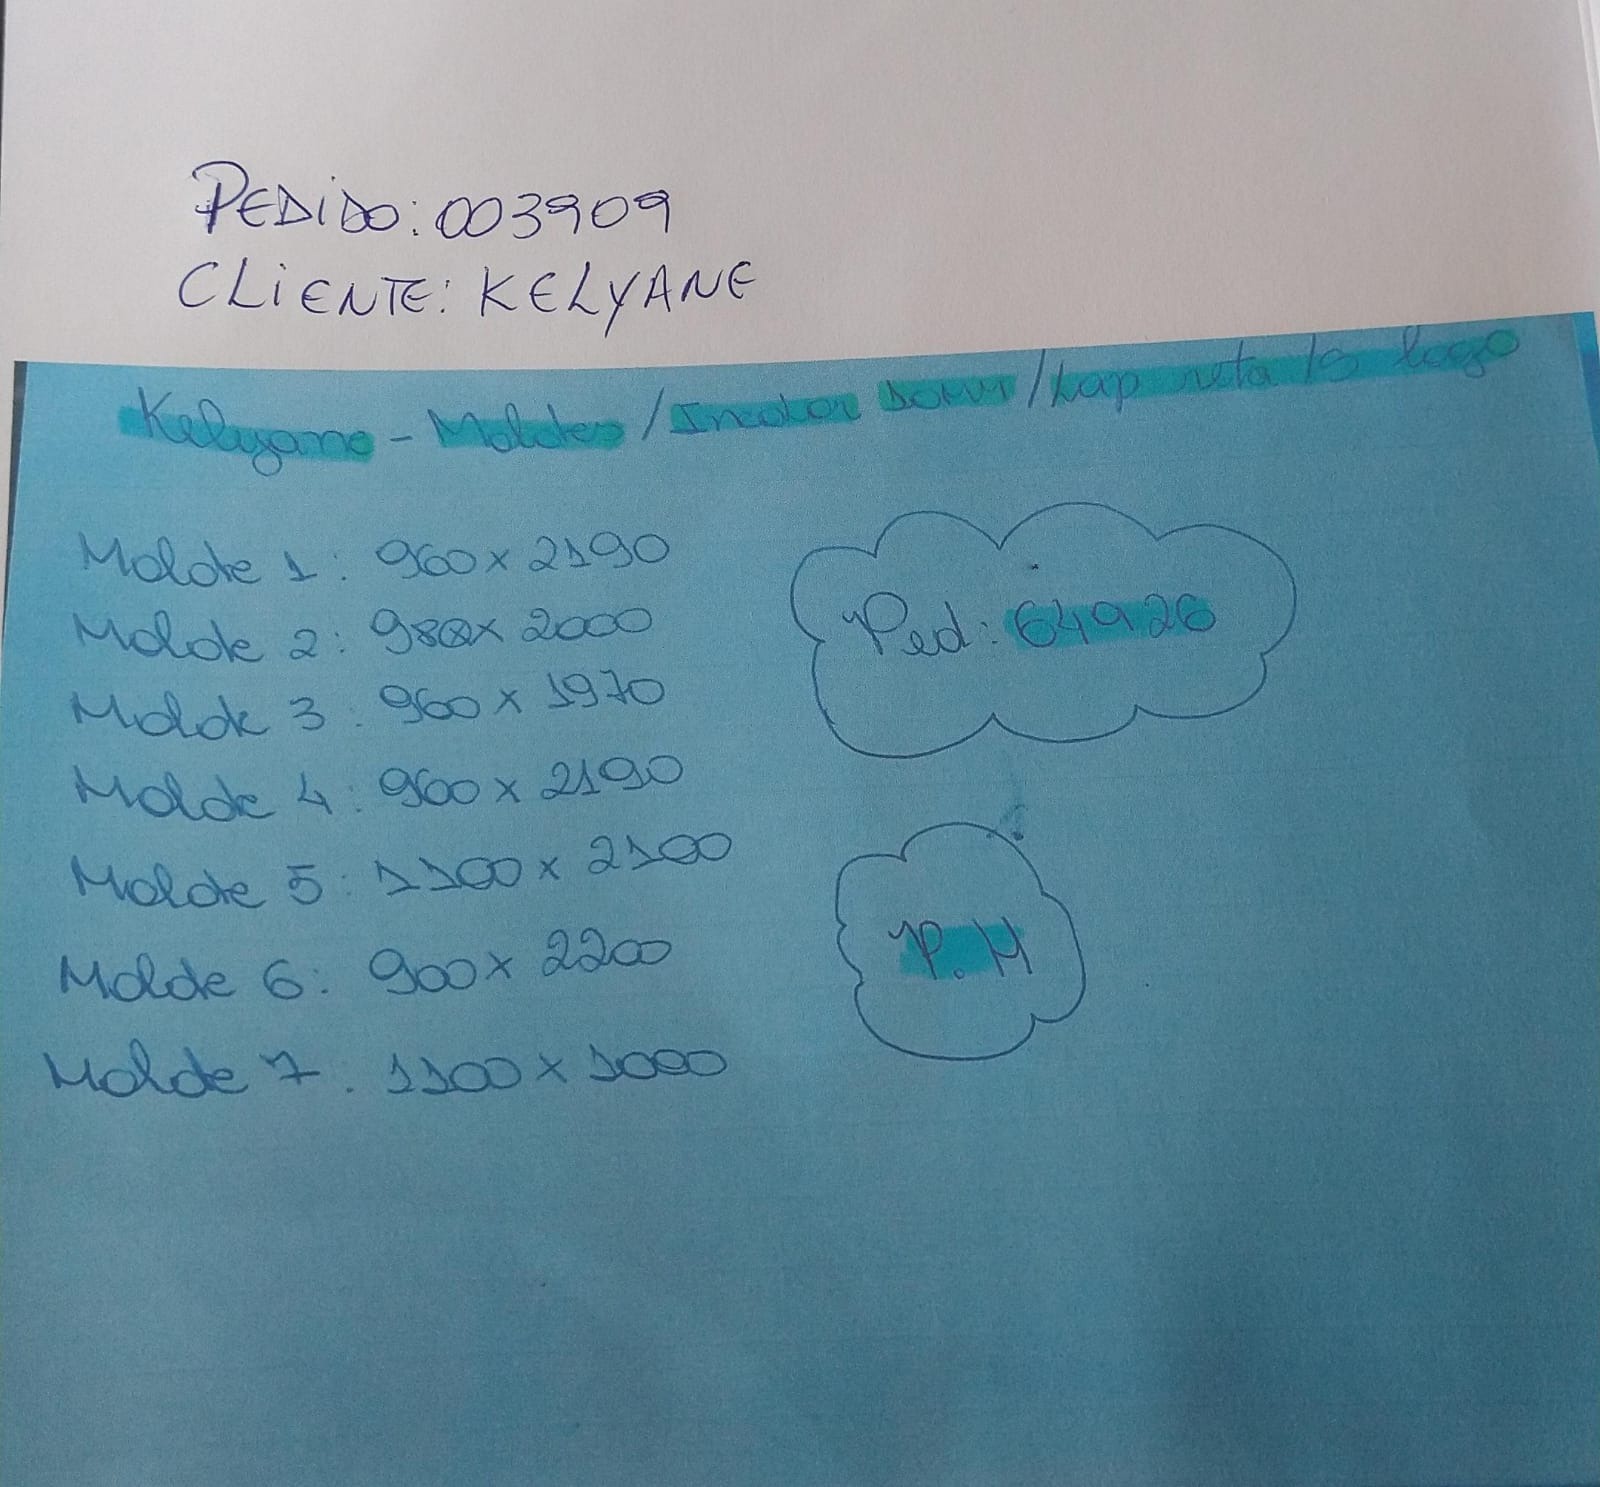 PEDIDO: 003909
CLIENTE: KELYANE
Kelyane - Moldes / Incolor 10mm / Lap reta / S logo
Molde 1: 960 x 2190
Ped: 64926
Molde 2: 980 x 2000
Molde 3: 960 x 1970
Molde 4: 960 x 2190
Molde 5: 1100 x 2100
P.M
Molde 6: 900 x 2200
Molde 7: 1100 x 1000